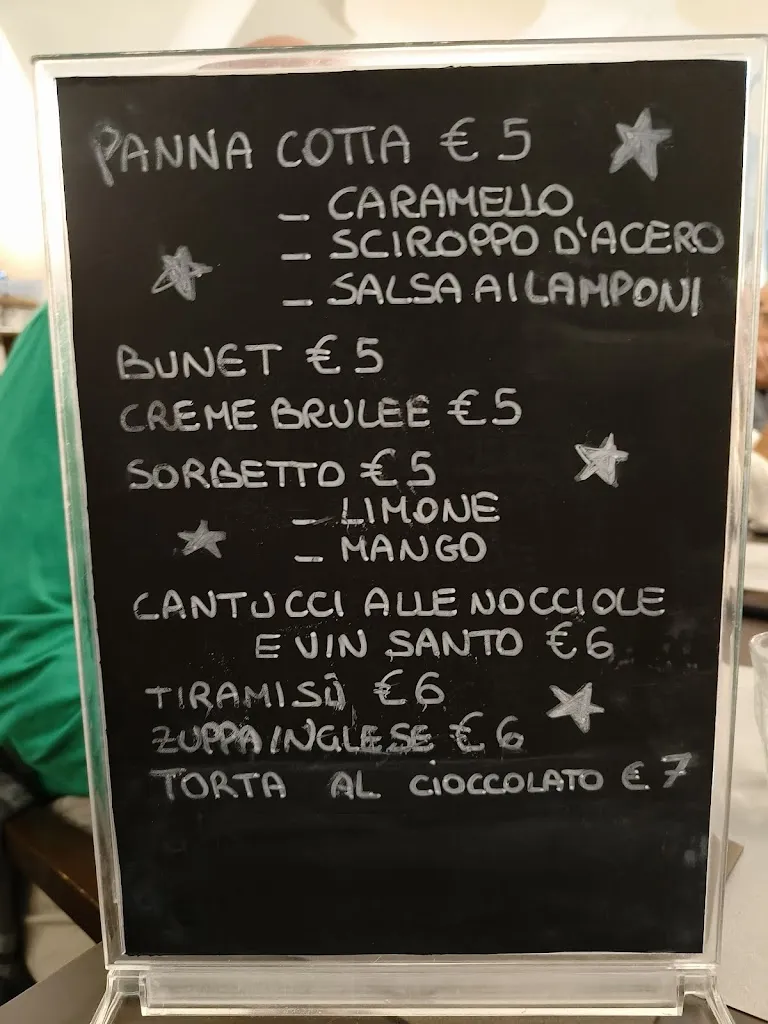 PANNA COTTA € 5
- CARAMELLO
- SCIROPPO D'ACERO
- SALSA AI LAMPONI
BUNET € 5
CREME BRULEE € 5
SORBETTO € 5
- LIMONE
- MANGO
CANTUCCI ALLE NOCCIOLE
E VIN SANTO € 6
TIRAMISÙ € 6
ZUPPA INGLESE € 6
TORTA AL CIOCCOLATO € 7